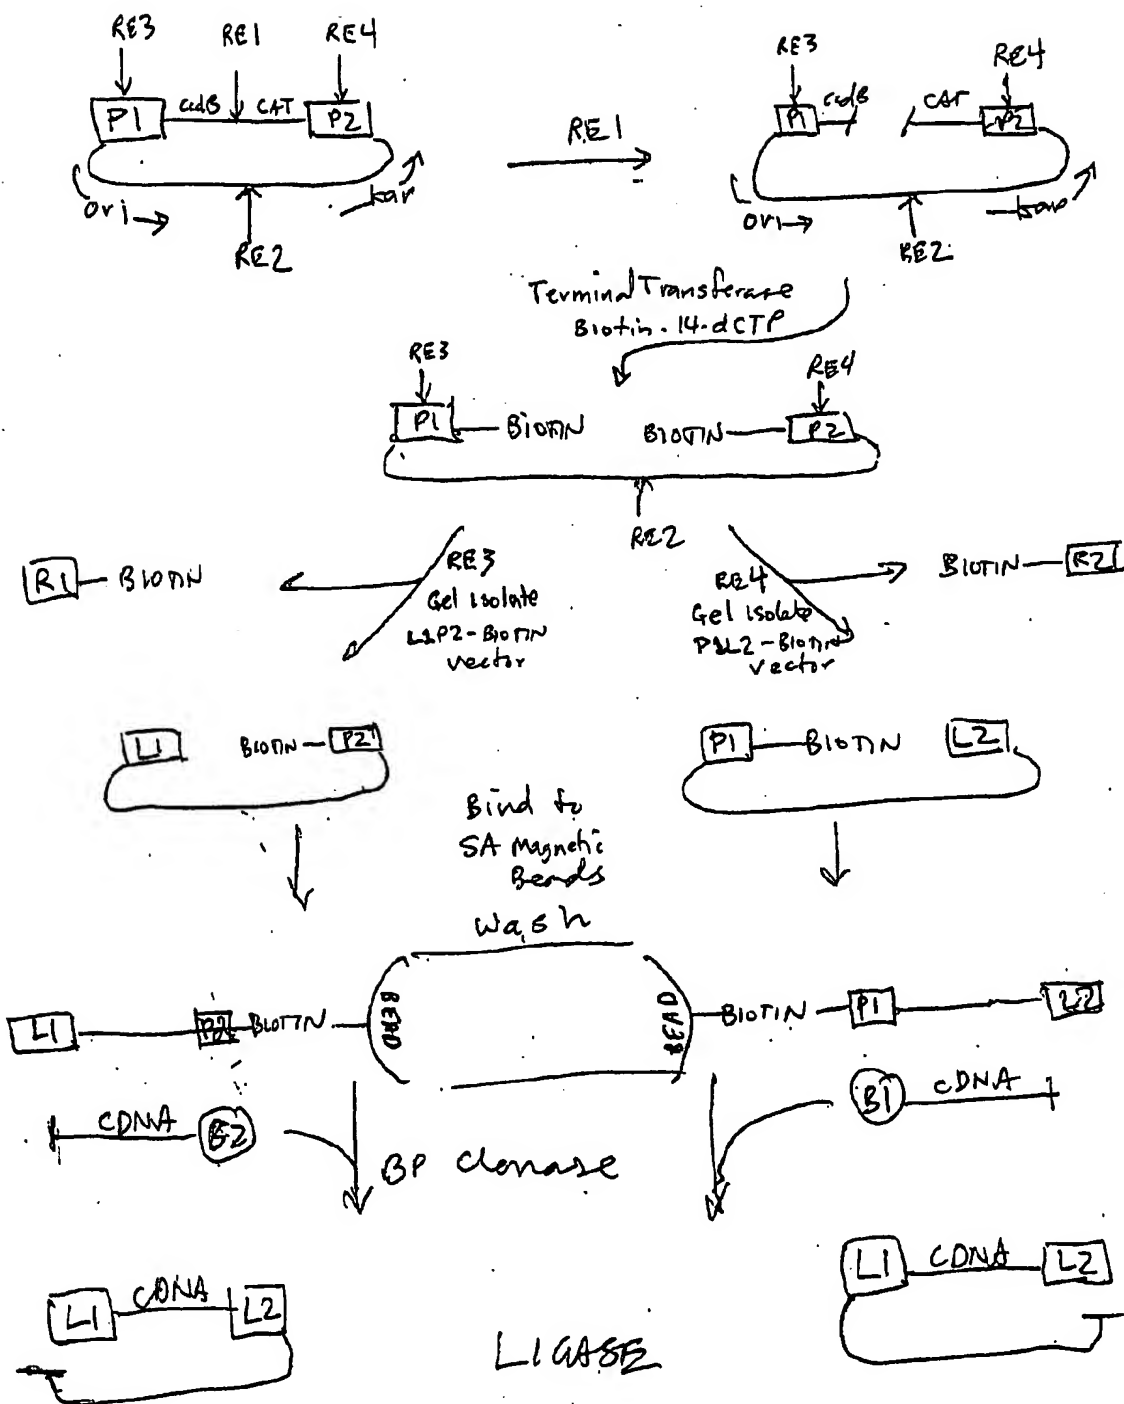 RE3 RE1 RE4
P1 ccdB CAT P2
Ori kar
RE2
RE1
RE3 RE4
P1 ccdB CAT P2
Ori kar
RE2
Terminal Transferase
Biotin-14-dCTP
RE3 RE4
P1 BIOTIN BIOTIN P2
RE2
R1 BIOTIN
RE3
Gel isolate
L1P2-BIOTIN
vector
RE4
Gel isolate
P1L2-BIOTIN
vector
BIOTIN R2
L1 BIOTIN P2
P1 BIOTIN L2
Bind to
SA Magnetic
Beads
Wash
L1 P2 BIOTIN BEAD
BEAD BIOTIN P1 L2
CDNA B2
B1 cDNA
BP Clonase
L1 CDNA L2
L1 CDNA L2
LIGASE